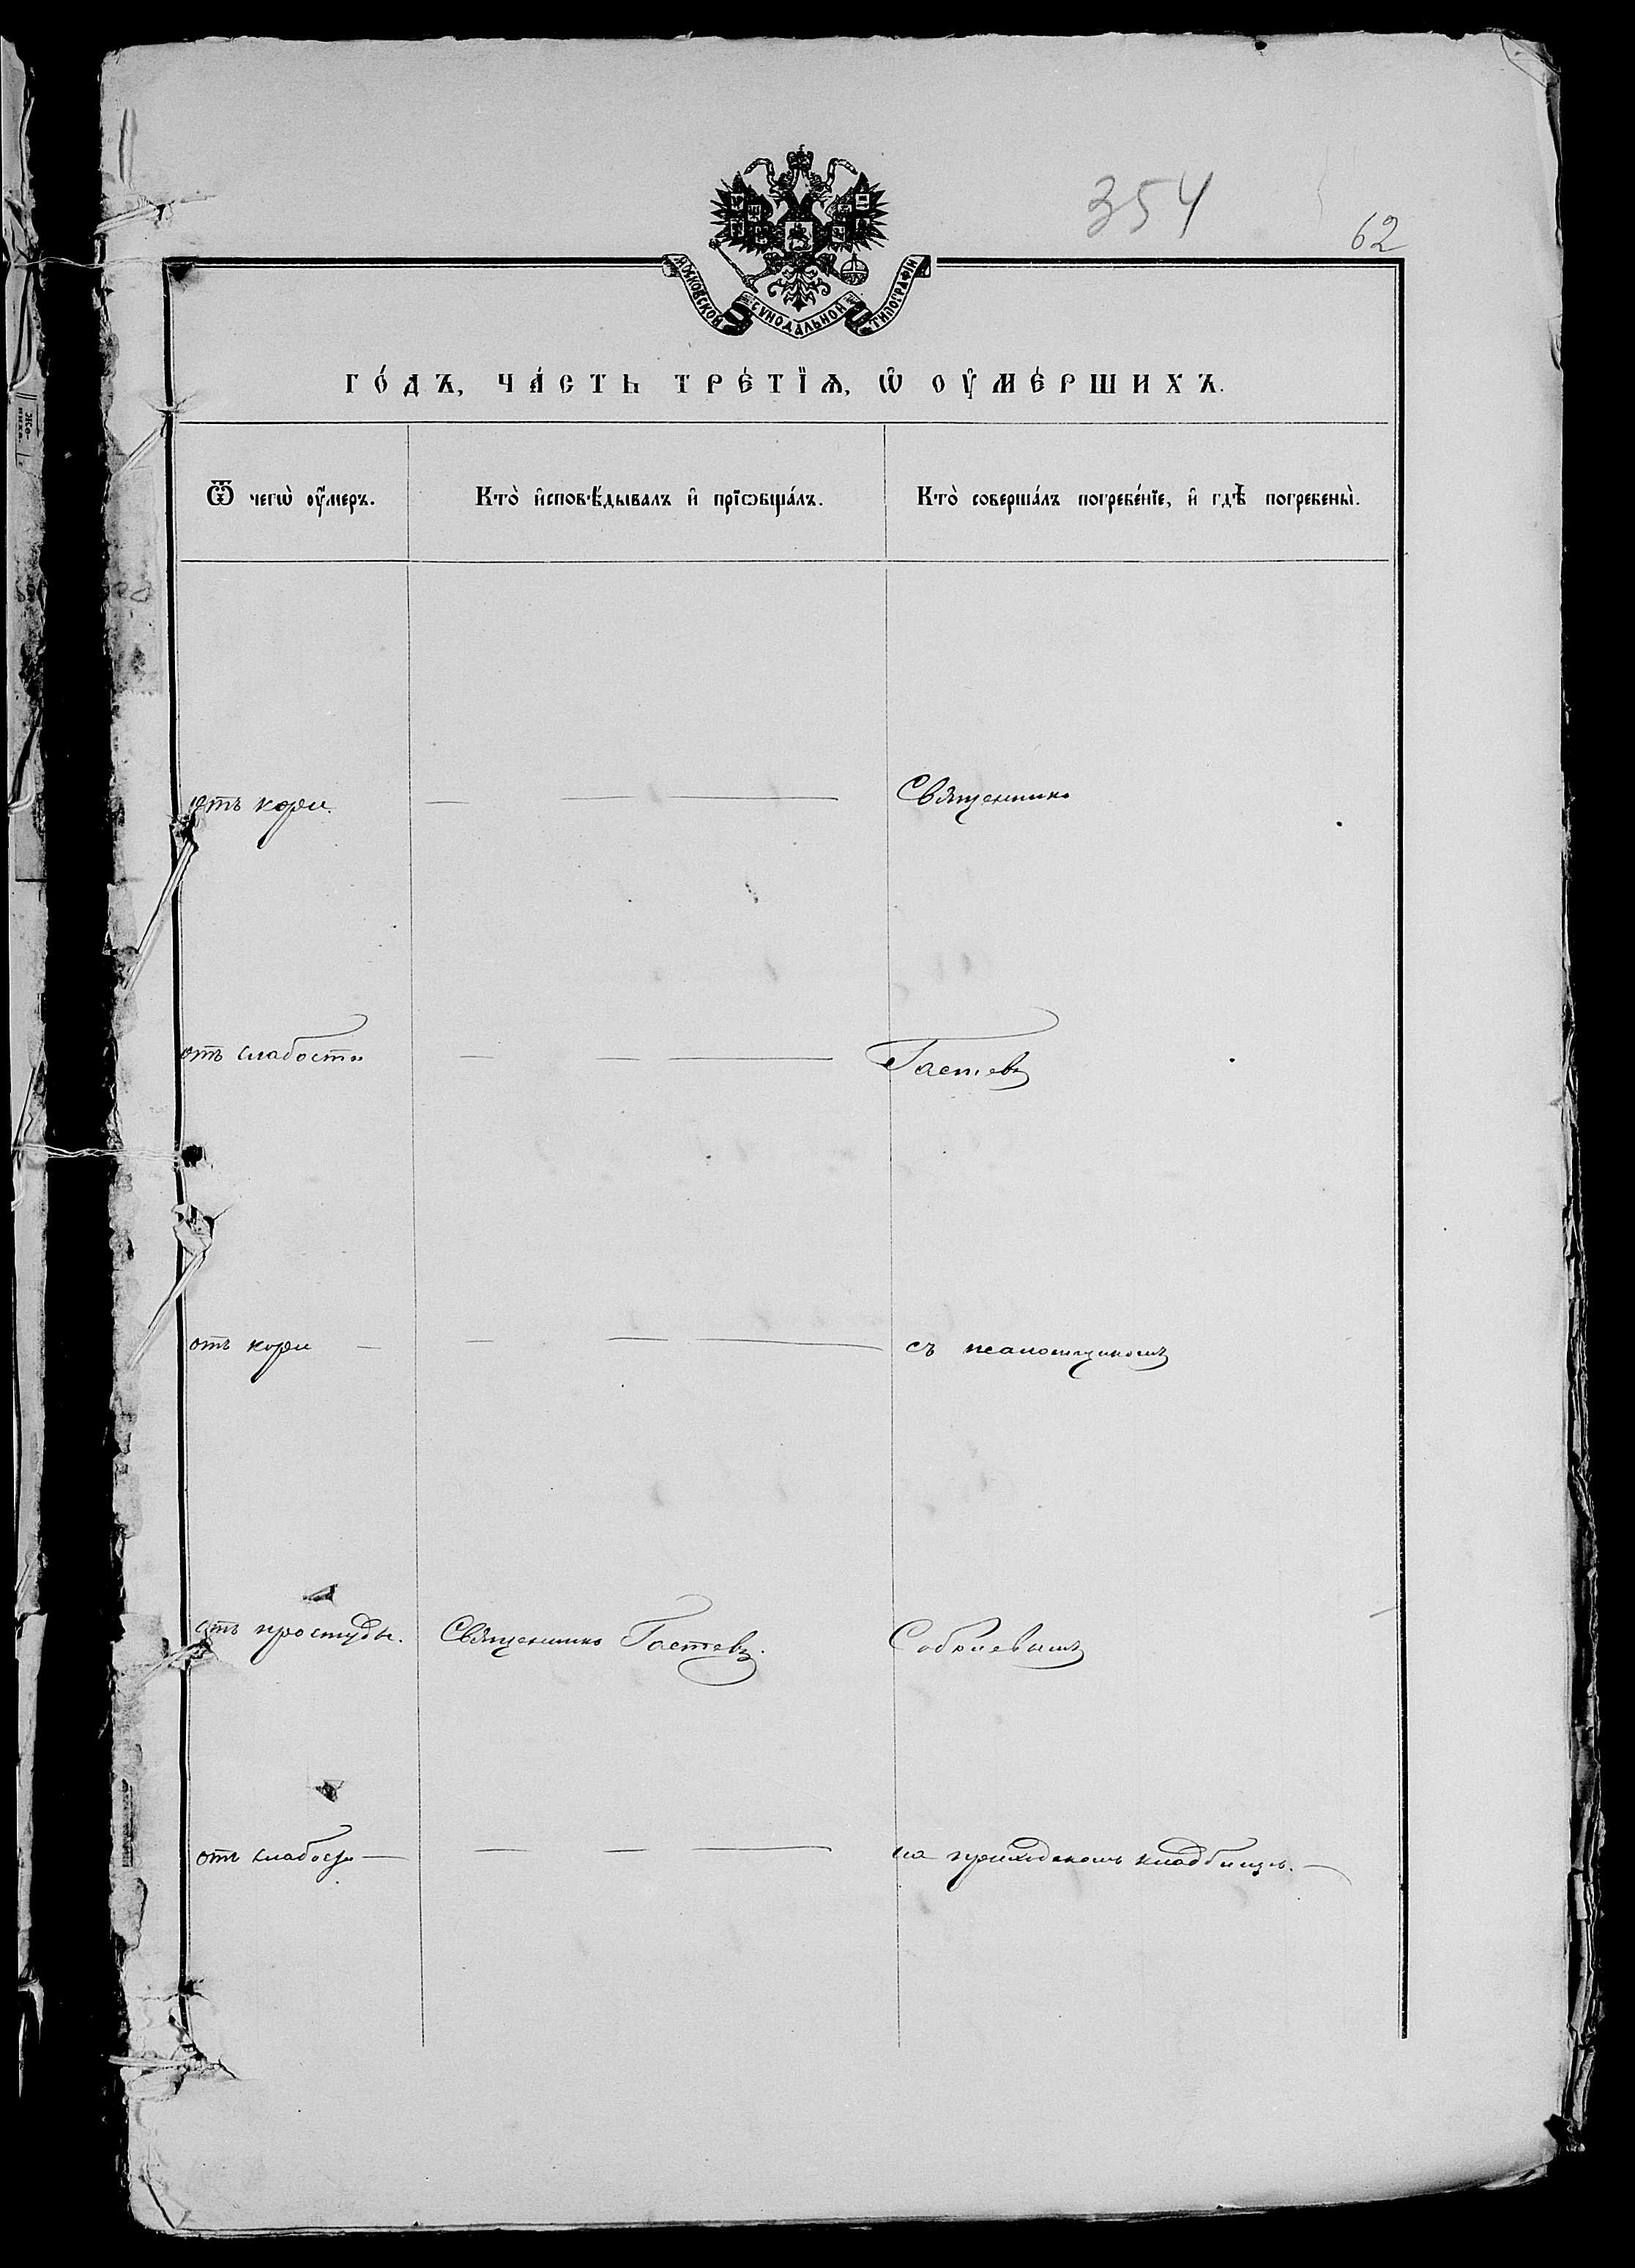 354
62
МОСКОВСКОЙ СѴНОДАЛЬНОЙ ТИПОГРАФІИ
ГО́ДЪ, ЧА́СТЬ ТРЕ́ТЇѦ, Ѡ҆ ОУ҆МЕ́РШИХЪ.
Ѿ чегѡ̀ оу҆́меръ.
Кто̀ и҆сповѣ́дывалъ и҆ прїѡбща́лъ.
Кто̀ соверша́лъ погребе́нїе, и҆ гдѣ̀ погребены̀.
отъ кори. — — — Священникъ
отъ слабости — — — Гастевъ
отъ кори — — — — съ псаломщикомъ
отъ простуды. Священникъ Гастевъ.
отъ слабости — — — — на приходскомъ кладбищѣ. —